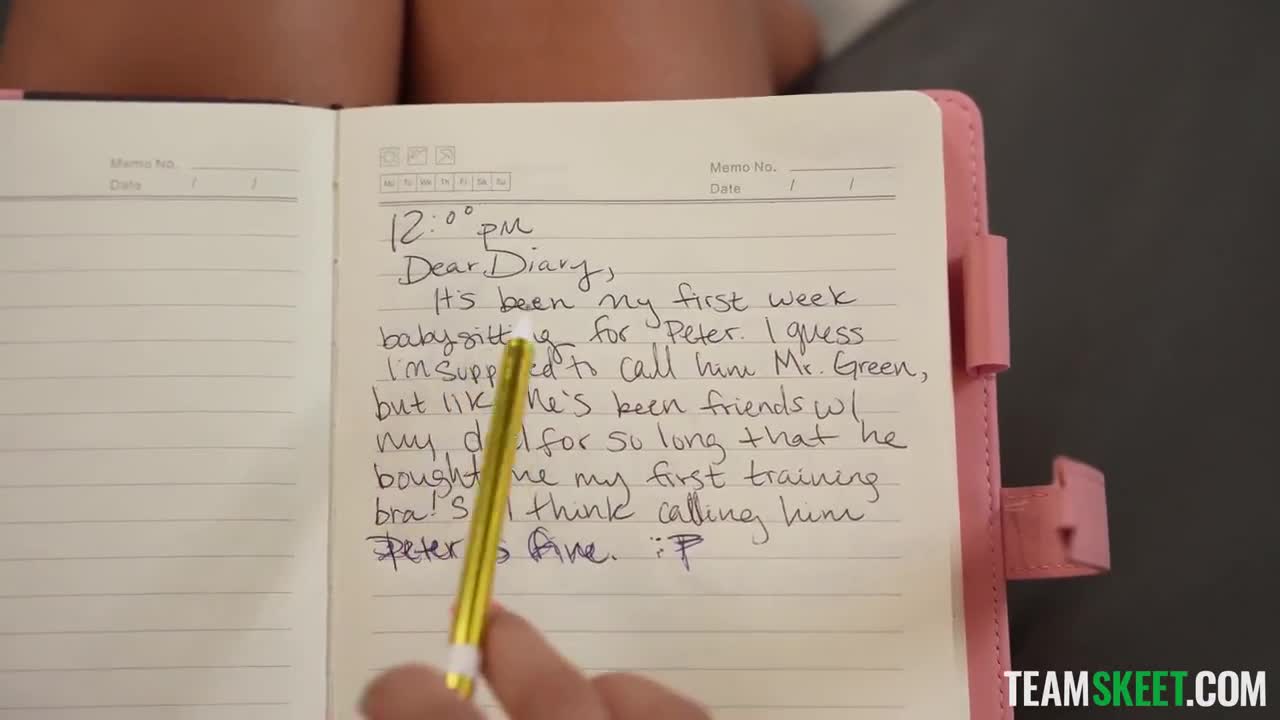 Memo No.
Date / /
Memo No.
Date / /
Mo Tu We Th Fr Sa Su
12:00 PM
Dear Diary,
It's been my first week
babysitting for Peter. I guess
I'm supposed to call him Mr. Green,
but like he's been friends w/
my dad for so long that he
bought me my first training
bra! So I think calling him
Peter is fine. :P
TEAMSKEET.COM